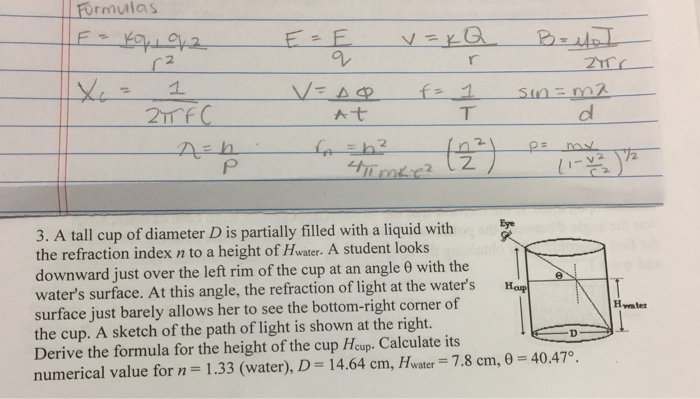 Formulas
F = kq₁q₂ / r²   E = F / q   V = kQ / r   B = μ₀I / 2πr
Xc = 1 / 2πfC   V = Δφ / Δt   f = 1 / T   sin = mλ / d
λ = h / p   rₙ = h² / 4π²mke² (n² / Z)   p = mv / (1 - v²/c²)^1/2
3. A tall cup of diameter D is partially filled with a liquid with
Eye
the refraction index n to a height of Hwater. A student looks
downward just over the left rim of the cup at an angle θ with the
water's surface. At this angle, the refraction of light at the water's
θ
Hcup
surface just barely allows her to see the bottom-right corner of
Hwater
the cup. A sketch of the path of light is shown at the right.
D
Derive the formula for the height of the cup Hcup. Calculate its
numerical value for n = 1.33 (water), D = 14.64 cm, Hwater = 7.8 cm, θ = 40.47°.